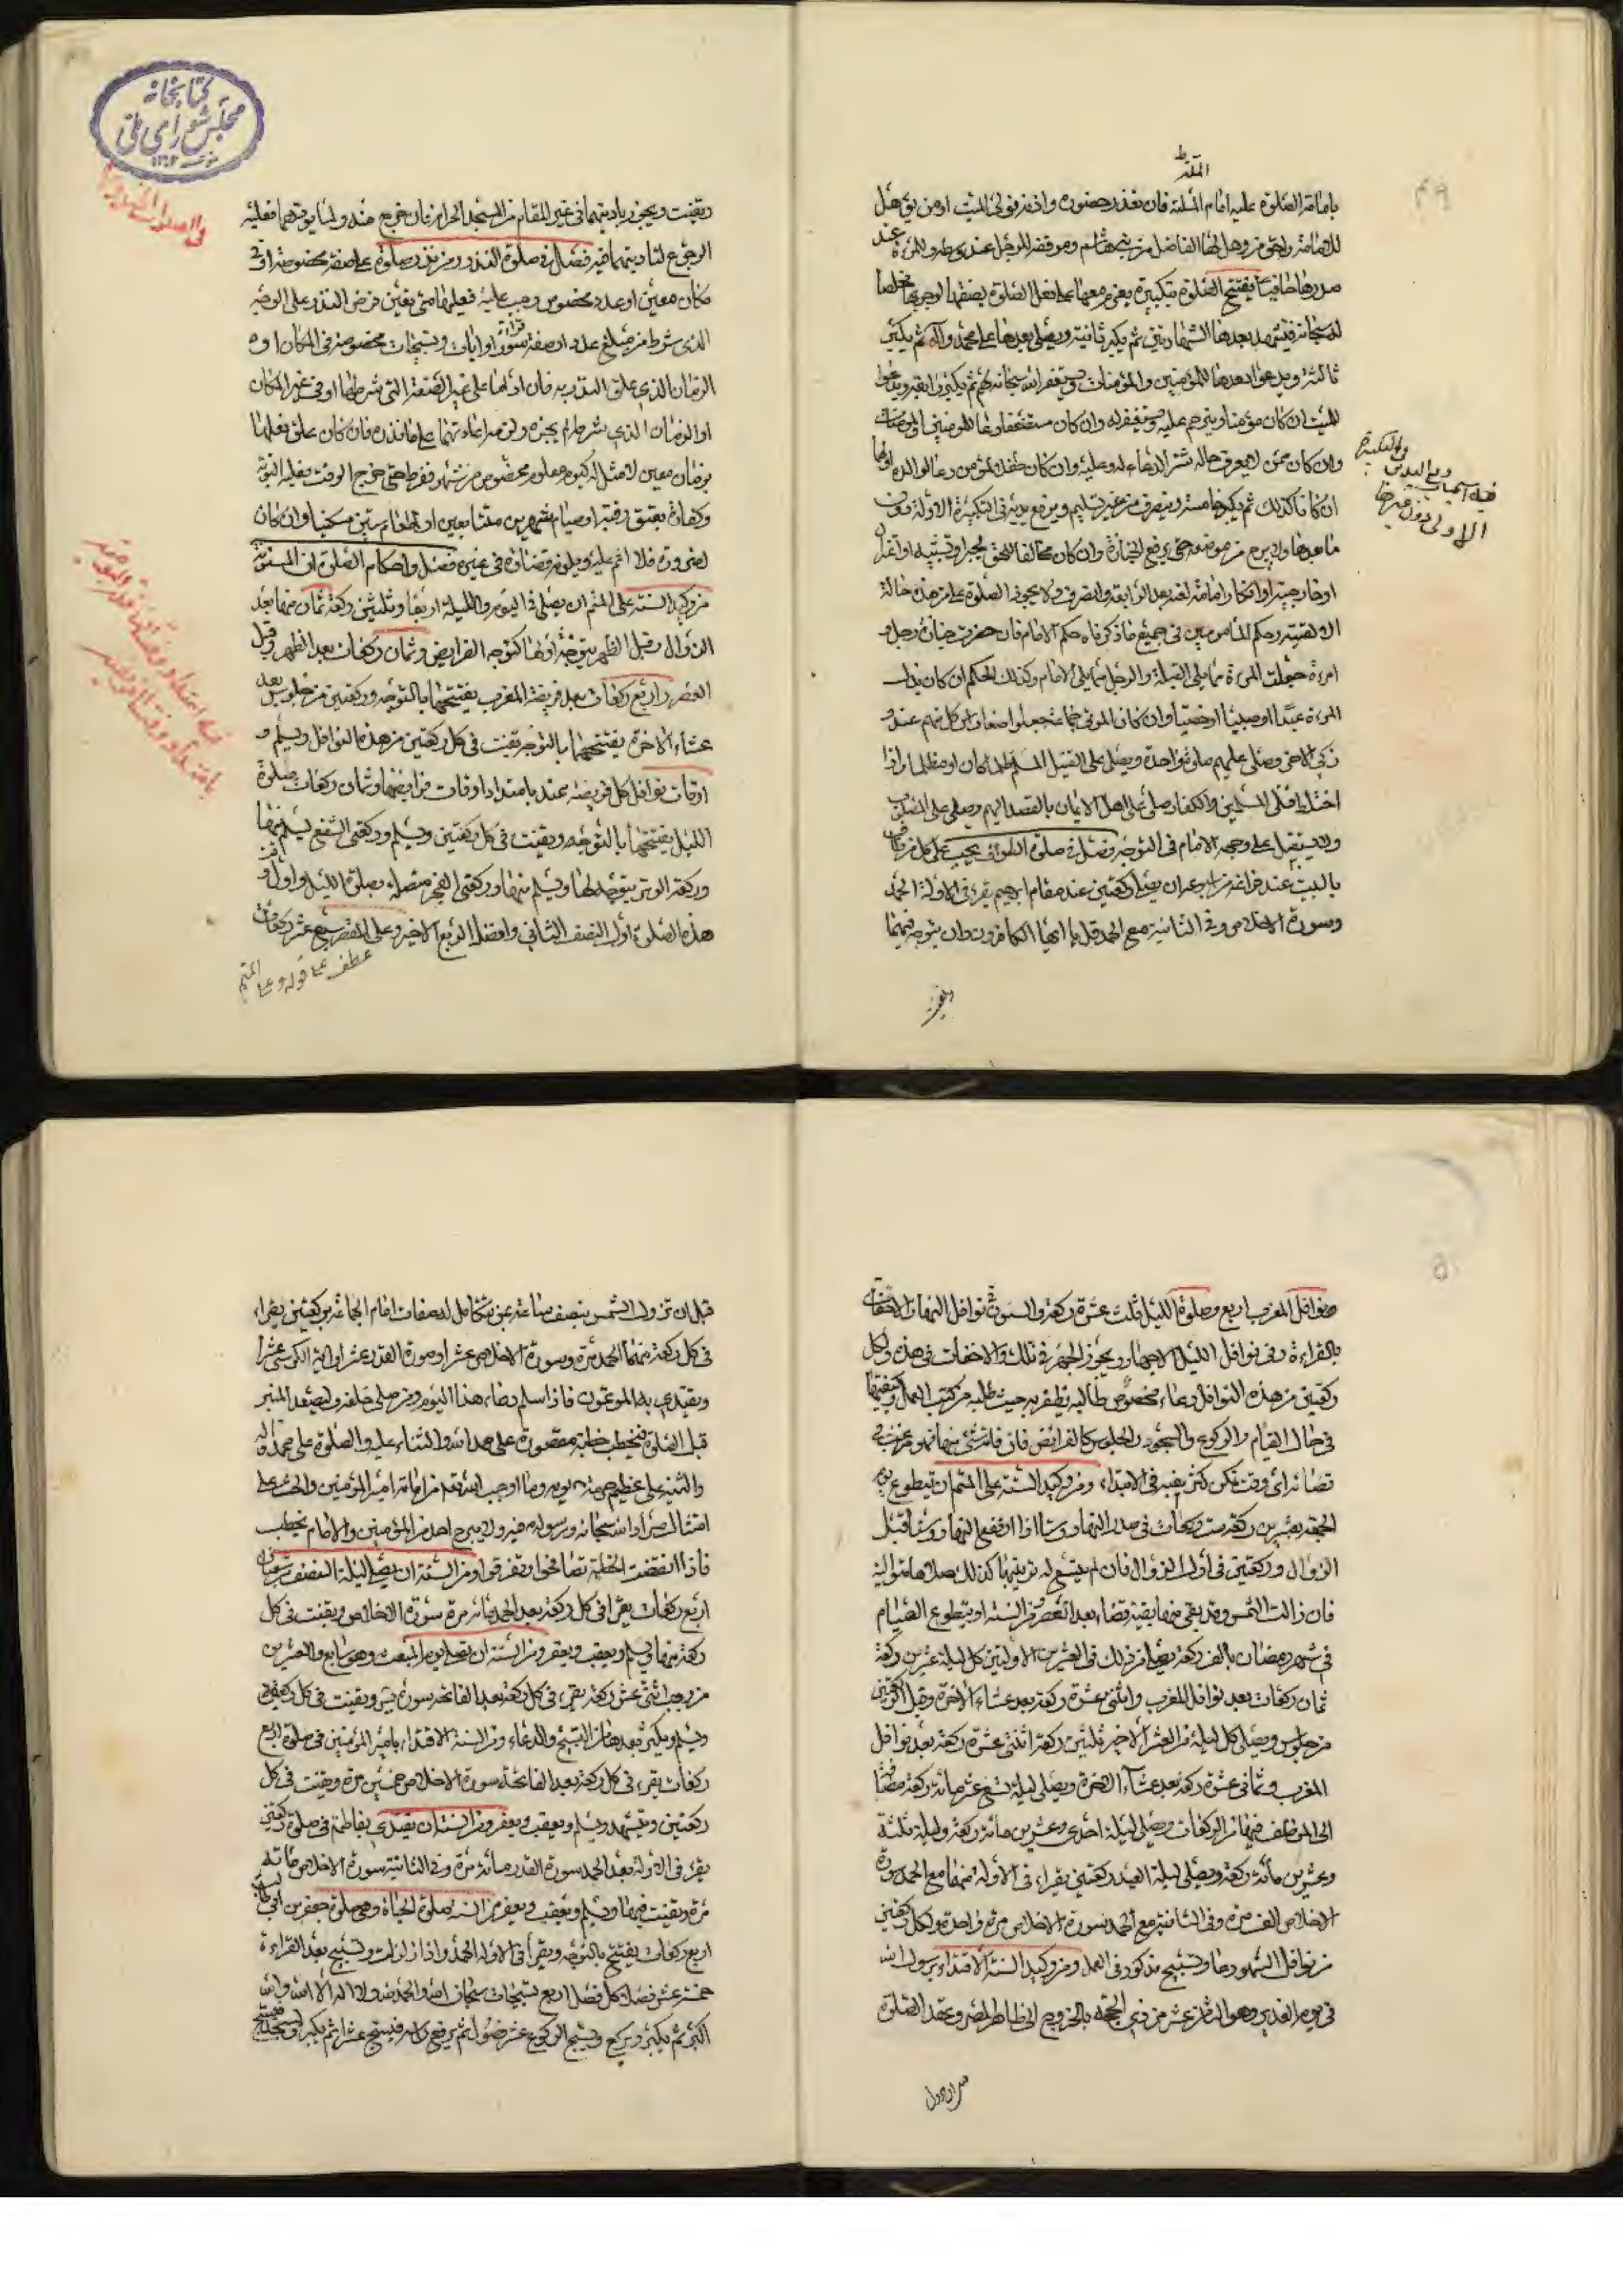 الملة
بامامة الصلوة عليه امام الملة فان تعذر حضوره واذنه فولى الميت او من يؤهل
للامامة واحق من وصل لها الفاضل من بنى هاشم وموقفه للرجل عند وسطه وللمرءة عند
صدرها حافيا يفتتح الصلوة بتكبيرة يعزم معها على فعل الصلوة بصفتها لوجوبها مخلصا
له سبحانه فيتشهد بعدها الشهادتين ثم يكبر ثانية ويصلى بعدها على محمد وآله ثم يكبر
ثالثة ويدعوا بعدها للمؤمنين والمؤمنات ويستغفر الله سبحانه لهم ثم يكبر رابعة ويدعوا
للميت ان كان مؤمنا ويترحم عليه ويستغفر له وان كان مستضعفا دعا للمؤمنين والمؤمنات
وان كان ممن لا يعرف حاله شرط الدعاء له وعليه وان كان طفلا لمؤمن دعا لوالديه اولهما
ان كانا كذلك ثم يكبر خامسة وينصرف من غير تسليم ويرفع يديه فى التكبيرة الاولة دون
ما بعدها ولا يبرح من موضعه حتى ترفع الجنازة وان كان مخالفا للحق بجبر او تشبيه او اعتزال
او خارجية او انكار امامة لعنه بعد الرابعة وانصرف ولا يجوز الصلوة على من هذه حاله
الا لتقية وحكم المأمومين فى جميع ما ذكرناه حكم الامام فان حضرت جنازة رجل و
امرءة جعلت المرءة مما يلى القبلة والرجل مما يلى الامام وكذلك الحكم ان كان بدل
المرءة عبدا او صبيا او خصيا وان كان الموتى جماعة جعلوا صفا
وصلى عليهم صلوة واحدة ويصلى على القتيل المسلم ظالما كان او مظلوما واذا
اختلط قتلى المسلمين والكفار صلى على اهل الايمان بالقصد اليهم وصلى على المصلوب
ولا يستقبل على وجهه الامام فى التوجه فصل فى صلوة الطواف يجب على كل من طاف
بالبيت عند فراغه من اسبوعه ان يصلى ركعتين عند مقام ابرهيم يقرء فى الاولة الحمد
وسورة الاخلاص وفى الثانية مع الحمد قل يا ايها الكافرون وان يتوجه فيهما
الاولى دون غيرها
كتابخانه
مجلس شوراى ملى
ويقنت ويجوز تاديتهما فى غير المقام من المسجد الحرام فان خرج منه ولما يؤدهما فعليه
الرجوع لتاديتهما فيه فصل فى صلوة النذر ومن نذر صلوة على صفة مخصوصة او فى
مكان معين او عدد مخصوص وجب عليه فعلها متى تعين فرض النذر على الوجه
الذى شرط من مبلغ عدد او صفة سورة او ايات وتسبيحات مخصوصة فى المكان او
الزمان الذى علق النذر به فان ادّاها على غير الصفة التى شرطها او فى غير المكان
او الزمان الذى شرط لم يجزه ولزمه اعادتها على ما نذره فان كان علق فعلها
بزمان معين لا مثل له كيوم معلوم مخصوص من شهر ففرط حتى خرج الوقت فعليه التوبة
وكفارة بعتق رقبة او صيام شهرين متتابعين او اطعام ستين مسكينا وان كان
لضرورة فلا اثم عليه ويلزمه قضاؤه فى غيره فصل واحكام الصلوة المسنونة
من وكيد السنة على المتم ان يصلى فى اليوم والليلة اربعا وثلثين ركعة ثمان منها بعد
الزوال وقبل الظهر يتوجه اولها كتوجه الفرايض وثمان ركعات بعد الظهر وقبل
العصر واربع ركعات بعد فريضة المغرب يفتتحها بالتوجه وركعتين من جلوس بعد
عشاء الاخرة يفتتحهما بالتوجه يقنت فى كل ركعتين من هذه النوافل ويسلم و
اوقات نوافل كل فريضة تمتد بامتداد اوقات فرايضها وثمان ركعات صلوة
الليل يفتتحها بالتوجه ويقنت فى كل ركعتين ويسلم وركعتى الشفع يسلم منهما
وركعة الوتر يتوجه لها ويسلم منها وركعتى الفجر متصلة بصلوة الليل واول وقت
هذه الصلوة اول النصف الثانى وافضله الربع الاخير وعلى المقصر سبع عشر ركعة
عطف على قوله وعلى المتم
نوافل المغرب اربع وصلوة الليل ثلث عشرة ركعة والسنة فى نوافل النهار الاخفات
بالقراءة وفى نوافل الليل الاجهار ويجوز الجهر فى تلك والاخفات فى هذه ولكل
ركعتين من هذه النوافل دعاء مخصوص طالبه يظفر به حيث طلبه من كتب العمل وكيفيتها
فى حال القيام والركوع والسجود والجلوس كالفرائض فان فاته شئ منها فهو مرغب فى
قضائه اى وقت تمكن كترغيبه فى الابتداء ومن وكيد السنة على المتم ان يتطوع يوم
الجمعة بعشرين ركعة ست ركعات فى صدر النهار وستا اذا ارتفع النهار وستا قبل
الزوال وركعتين فى اول الزوال فان لم يتسع له ترتيبها كذلك صلاها متوالية
فان زالت الشمس وقد بقى منها بقية قضاه بعد العصر ومن السنة ان يتطوع الصيام
فى شهر رمضان بالف ركعة يصلى من ذلك فى العشرين الاولتين كل ليلة عشرين ركعة
ثمان ركعات بعد نوافل المغرب واثنتى عشرة ركعة بعد عشاء الاخرة وقبل الركعتين
من جلوس ويصلى كل ليلة من العشر الاخير ثلثين ركعة اثنتى عشرة ركعة بعد نوافل
المغرب وثمانى عشرة ركعة بعد عشاء الاخرة ويصلى ليلة تسع عشر مائة ركعة مضافا
الى الموظف فيها من الركعات ويصلى ليلة احدى وعشرين مائة ركعة وليلة ثلثة
وعشرين مائة ركعة ويصلى ليلة العيد ركعتين يقراء فى الاولة منهما مع الحمد سورة
الاخلاص الف مرة وفى الثانية مع الحمد سورة الاخلاص مرة واحدة ولكل ركعتين
من نوافل الشهر دعاء وتسبيح مذكور فى العمل ومن وكيد السنة الاقتداء برسول الله
فى يوم الغدير وهو الثامن عشر من ذى الحجة بالخروج الى ظاهر المصر وعقد الصلوة
قبل ان تزول الشمس بنصف ساعة بمن يتكامل له صفات امام الجماعة بركعتين يقراء
فى كل ركعة منهما الحمد مرة وسورة الاخلاص عشرا وسورة القدر عشرا واية الكرسى عشرا
ويقتدى به المؤتمون فاذا سلم دعاء هذا اليوم ومن صلى خلفه وليصعد المنبر
قبل الصلوة فيخطب خطبة مقصورة على حمد الله والثناء عليه والصلوة على محمد وآله
والتنبيه على عظيم حرمة يومه وما اوجب الله تع من امامة امير المؤمنين والحث على
امتثال مراد الله سبحانه ورسوله ص فيه ولا يبرح احد من المؤمنين والامام يخطب
فاذا انقضت الخطبة تصافحوا وتفرقوا ومن السنة ان يصلى ليلة النصف من شعبان
اربع ركعات يقراء فى كل ركعة بعد الحمد مائة مرة سورة الاخلاص ويقنت فى كل
ركعة منها ويسلم ويعقب ويعفر ومن السنة ان يصلى يوم المبعث وهو سابع والعشرين
من رجب اثنتى عشر ركعة يقرء فى كل ركعة بعد الفاتحة سورة يس ويقنت فى كل ركعتين
ويسلم ويكثر بعدها من التسبيح والدعاء ومن السنة الاقتداء بامير المؤمنين فى صلوة اربع
ركعات يقرء فى كل ركعة بعد الفاتحة سورة الاخلاص خمسين مرة ويقنت فى كل
ركعتين ويتشهد ويسلم ويعقب ويعفر ومن السنة ان يقتدى بفاطمة فى صلوة ركعتين
يقرء فى الاولة بعد الحمد سورة القدر مائة مرة وفى الثانية سورة الاخلاص مائة
مرة ويقنت فيهما ويسلم ويعقب ويعفر ومن السنة صلوة الحباة وهى صلوة جعفر بن ابى طالب
اربع ركعات يفتتح بالتوجه ويقرأ فى الاولة الحمد واذا زلزلت وتسبح بعد القراءة
خمسة عشر فصلا كل فصل اربع تسبيحات سبحان الله والحمد لله ولا اله الا الله والله
اكبر ثم يكبر ويركع ويسبح الركوع عشر فصول ثم يرفع راسه فيسبح عشرا ثم يكبر ويسجد فيسبح